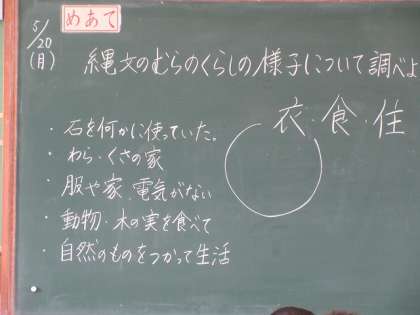 めあて
5/20
(月)
縄文のむらのくらしの様子について調べよ
衣・食・住
・石を何かに使っていた。
・わら・くさの家
・服や家、電気がない
・動物・木の実を食べて
・自然のものをつかって生活